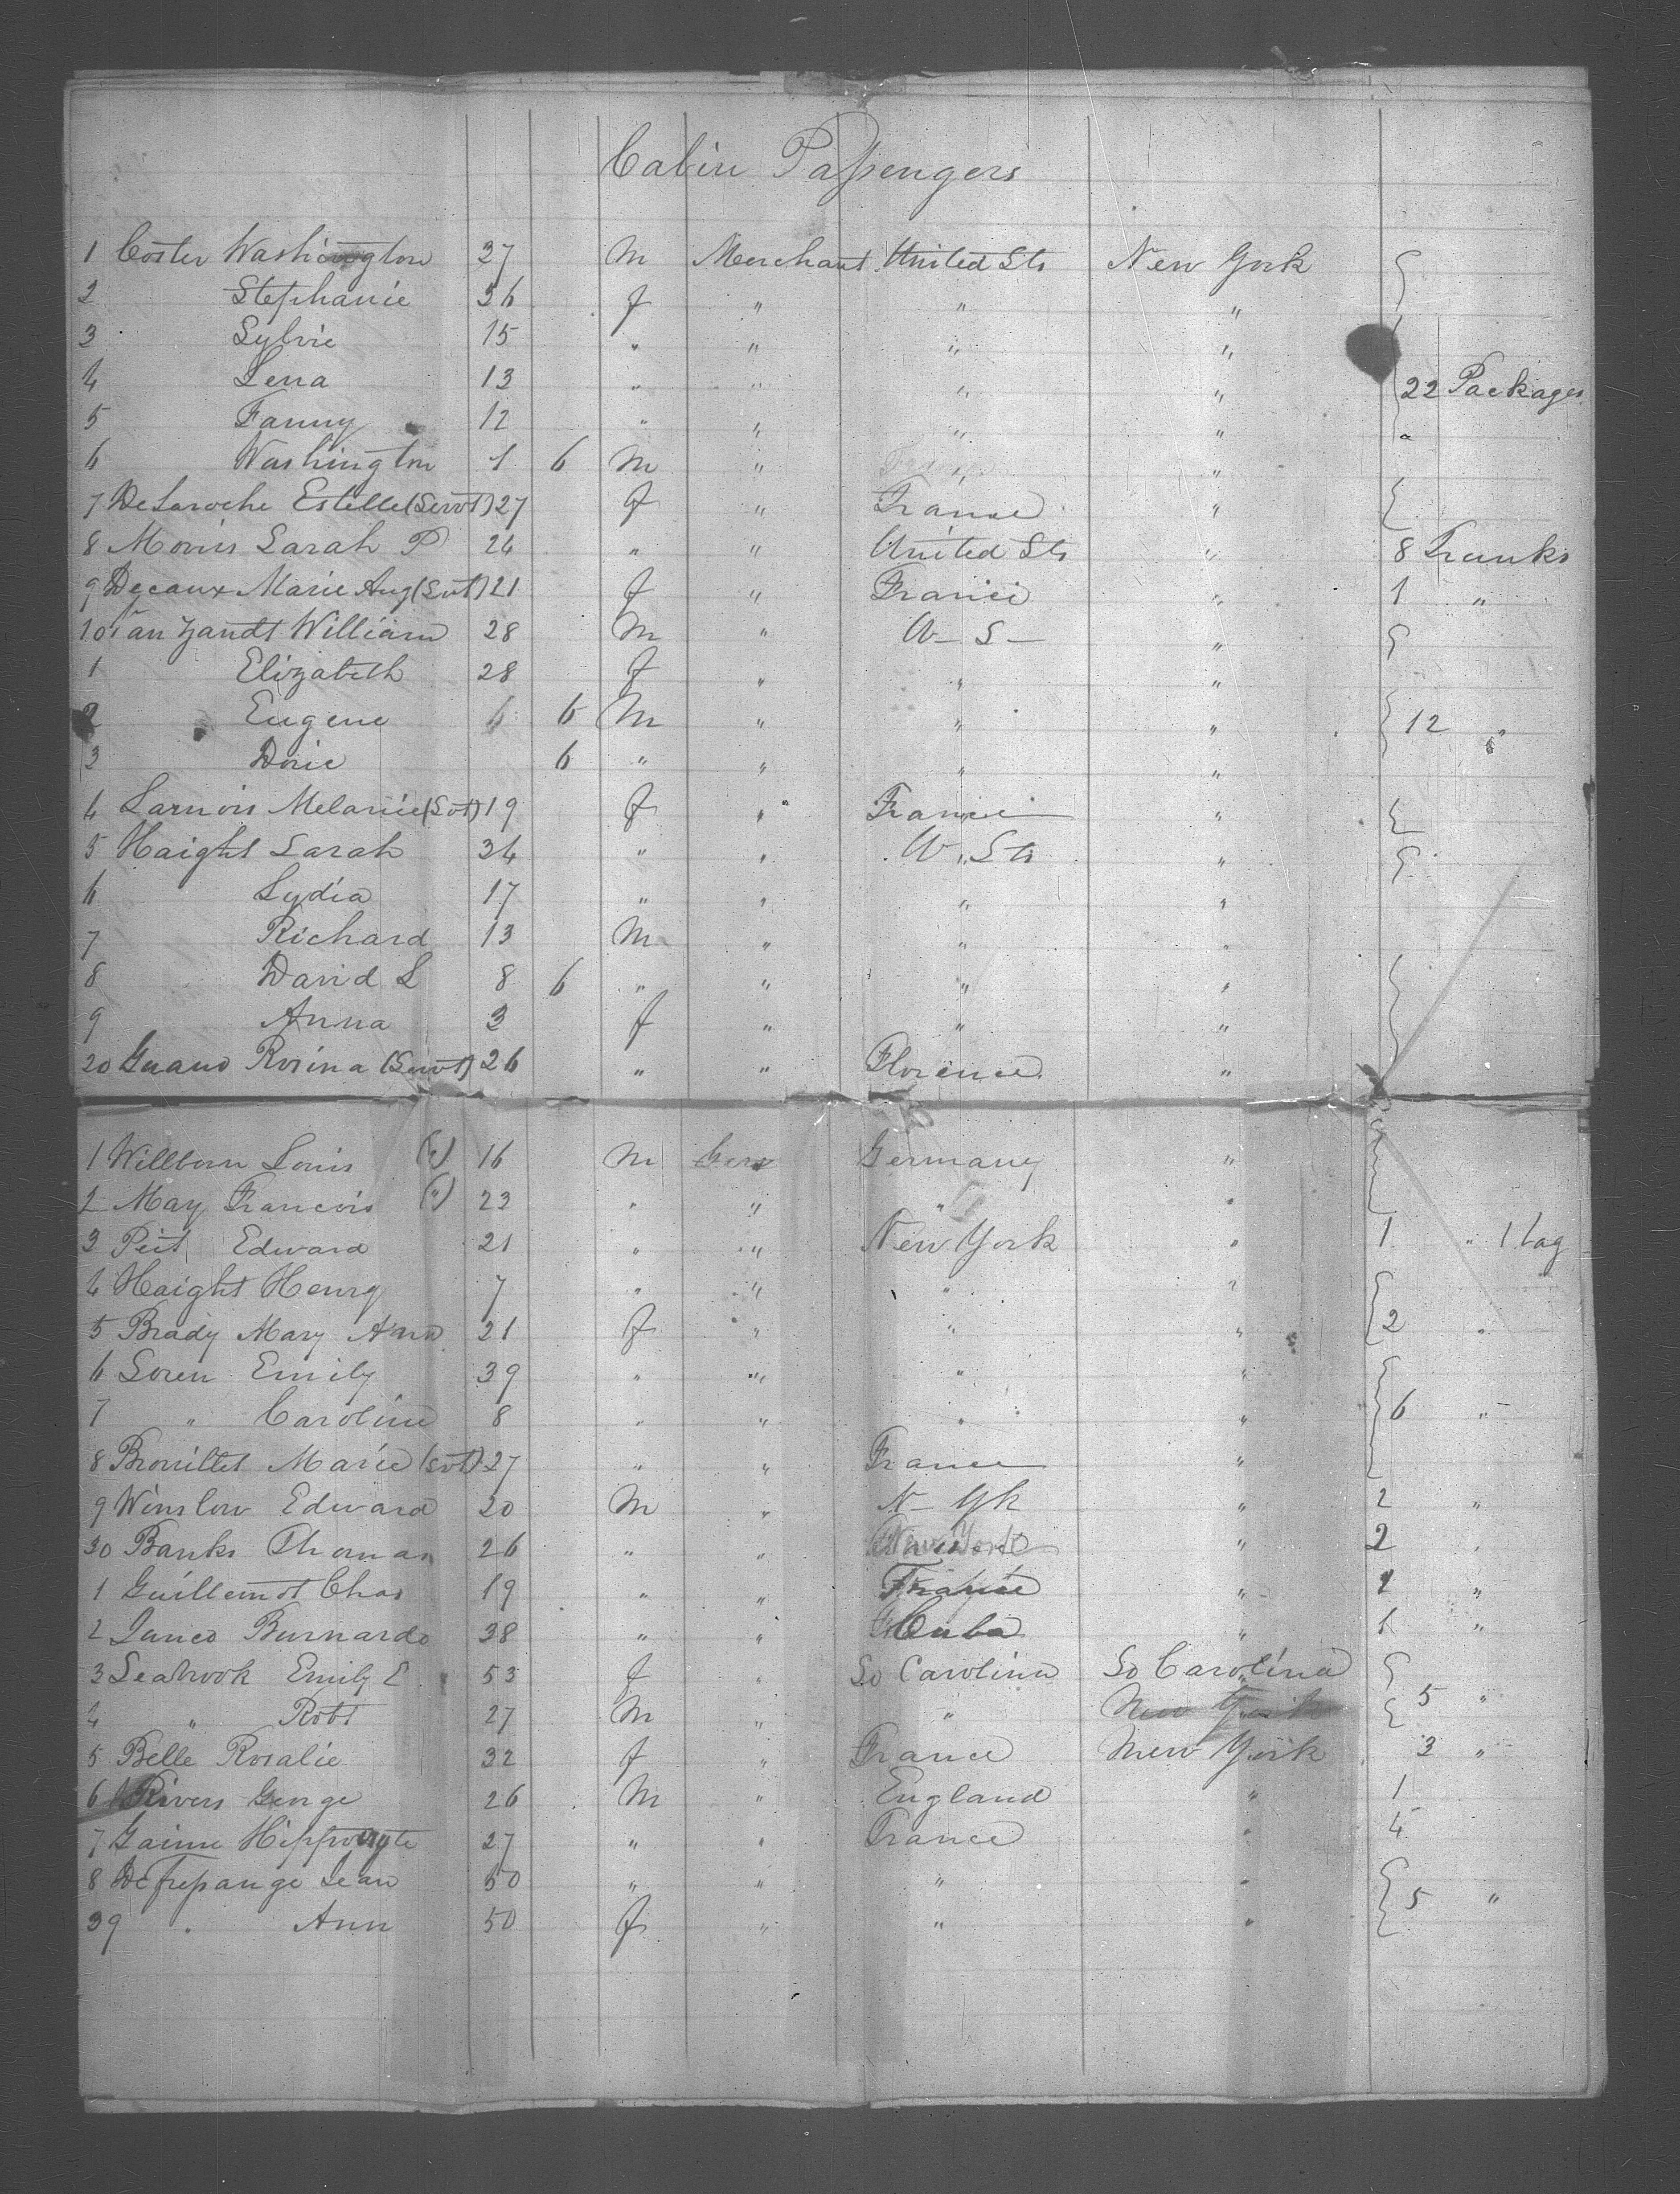 Cabin Passengers
1 Coster Washington 37 M Merchant United Sts New York
2 Stephanie 36 f " " "
3 Sylvie 15 " " " "
4 Lena 13 " " " "
5 Fanny 12 " " " "
6 Washington 1 6 M " "
22 Packages
7 DeLaroche Estelle (Servt) 27 f " France "
8 Morris Sarah P 24 " " United Sts " 8 Trunks
9 Decaux Marie Aug (Svt) 21 f " France " 1 "
10 Van Zandt William 28 M " U-S- "
1 Elizabeth 28 f " " "
2 Eugene 6 M " " " 12 "
3 Dorie 6 " " " "
4 Larnois Melanie (Svt) 19 f " France "
5 Haight Sarah 34 " " U. Sts "
6 Lydia 17 " " " "
7 Richard 13 M " " "
8 David L 8 6 " " " "
9 Anna 3 f " " "
20 Guano Rosina (Servt) 26 " " Florence "
1 Willborn Louis (") 16 M Germany "
2 May Francois (") 23 " " " "
3 Edward 21 " " New York " 1 " 1 bag
4 Haight Henry 7 " " " "
5 Brady Mary Ann 21 f " " " 2 "
6 Loren Emily 39 " " " "
7 " Caroline 8 " " " " 6 "
8 Brouillet Marie (svt) 27 " " France "
9 Winslow Edward 20 M " N- Yk " 2 "
30 Banks Thomas 26 " " New York " 2 "
1 Guillemot Chas 19 " " France " 1 "
2 Junco Burnardo 38 " " Cuba " 1 "
3 Seabrook Emily E 53 f " So Carolina So Carolina
4 " Robt 27 M " " New York 5 "
5 Belle Rosalie 32 f " France New York 3 "
6 Rivers George 26 M " England " 1
7 Jaime Hippolyte 27 " " France " 4
8 Jean 50 " " " "
39 " Ann 50 f " " " 5 "